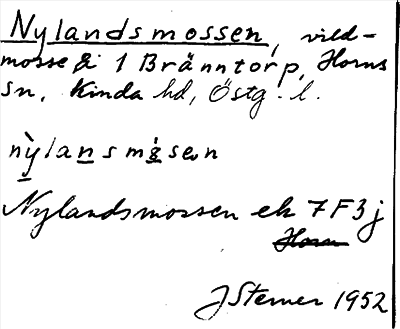 Nylandsmossen, vild-
mosse å 1 Bränntorp, Horns
sn, Kinda hd, Östg. l.
nỳlansmósen
Nylandsmossen ek 7F3j
Horn
J Sterner 1952